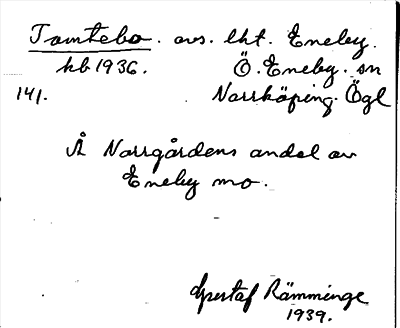 Tomtebo. avs. lht. Eneby.
hb 1936. Ö. Eneby. sn
141. Norrköping. Ögl
Å Norrgårdens andel av
Eneby mo.
Gustaf Rämminge
1939.